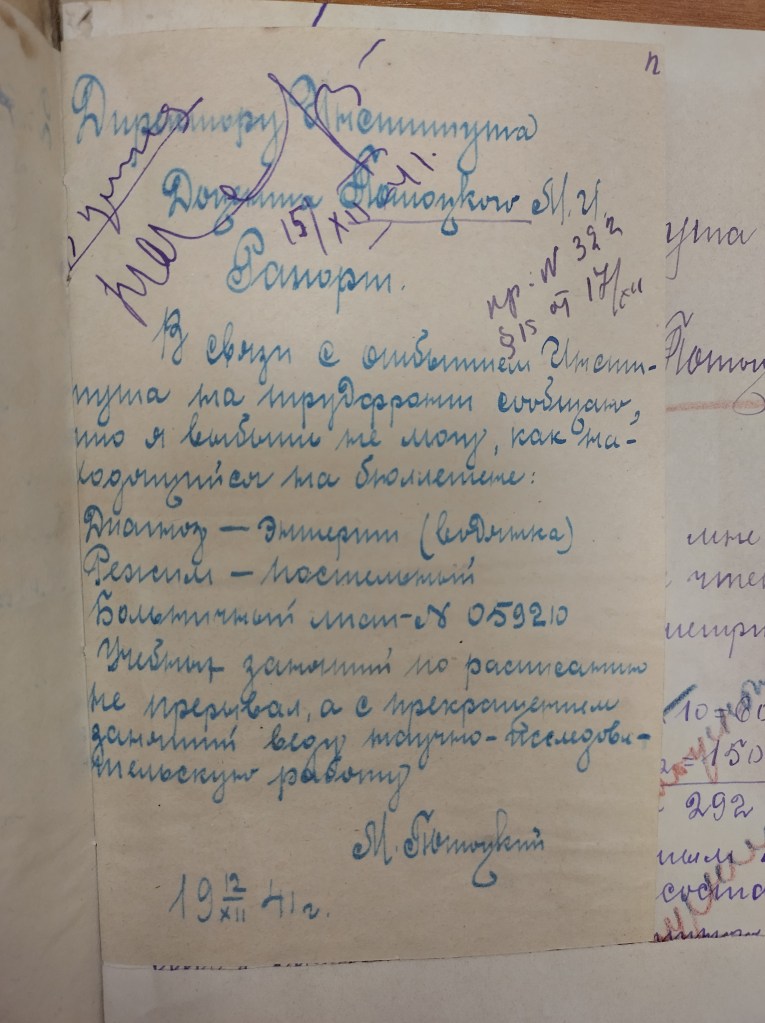 п
Директору Института
Доцента Потоцкого М.И.
15/XII 41.
Рапорт.
пр. N 322
§ 15 от 17/XII
В связи с отбытием Инсти-
тута на трудфронт сообщаю,
что я выбыть не могу, как на-
ходящийся на бюллетене:
Диагноз — Энтерит (водянка)
Режим — постельный
Больничный лист - N 059210
Учебных занятий по расписанию
не прерывал, а с прекращением
занятий веду научно-исследова-
тельскую работу
М. Потоцкий
19 12/XII 41 г.
ута
Потоц
мне
чте
метри
10 = 60
150
292
ным
соста